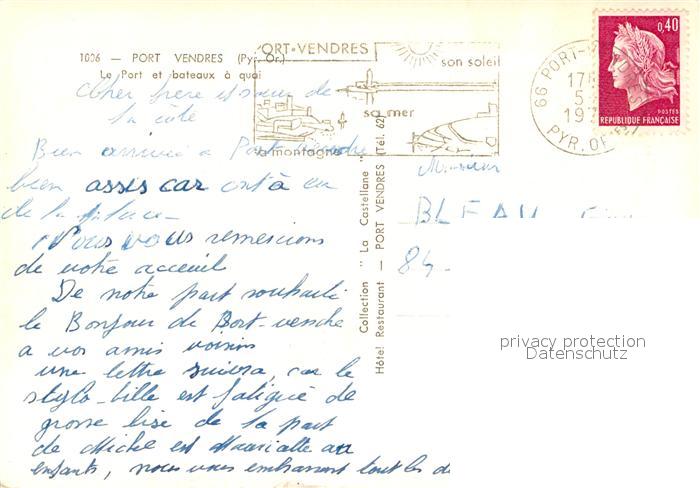 1006 — PORT VENDRES (Pyr. Or.)
Le Port et bateaux à quai
PORT-VENDRES
son soleil
sa mer
sa montagne
66 PORT-
17H
5
19
PYR. OR.
0,40
POSTES
REPUBLIQUE FRANÇAISE
Cher frere et sœur de
la côte
Bien arrivée a Port vendre
bien assis car ont à eu
de la place —
Nous vous remercions
de votre acceuil
De notre part souhaité
le Bonjour de Port-vendre
a vos amis voisins
une lettre suivra, car le
stylo-bille est fatigué de
grosse bise de la part
de Michel et au
enfants, nous vous embrassont tout les d
Collection "La Castellane"
Hôtel Restaurant — PORT VENDRES (Tél. 62)
Monsieur
BLEAU
84-
privacy protection
Datenschutz